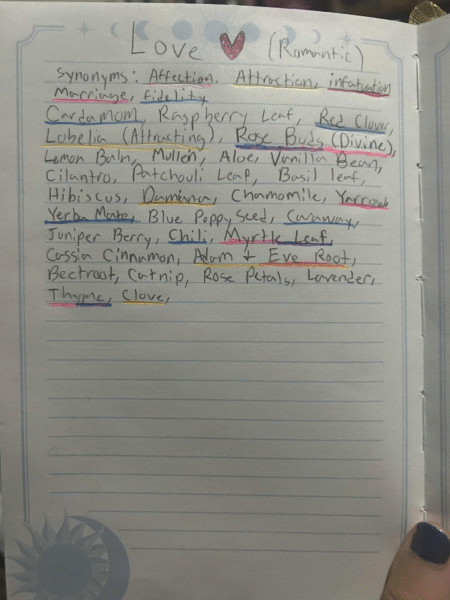 Love (Romantic)
Synonyms: Affection. Attraction, infatuation
Marriage, fidelity
Cardamom, Raspberry Leaf, Red Clover,
Lobelia (Attracting), Rose Buds (Divine),
Lemon Balm, Mullein, Aloe, Vanilla Bean,
Cilantro, Patchouli Leaf, Basil leaf,
Hibiscus, Damiana, Chamomile, Yarrow
Yerba Mate, Blue Poppy Seed, Caraway,
Juniper Berry, Chili, Myrtle Leaf,
Cassia Cinnamon, Adam + Eve Root,
Beetroot, Catnip, Rose Petals, Lavender,
Thyme, Clove,